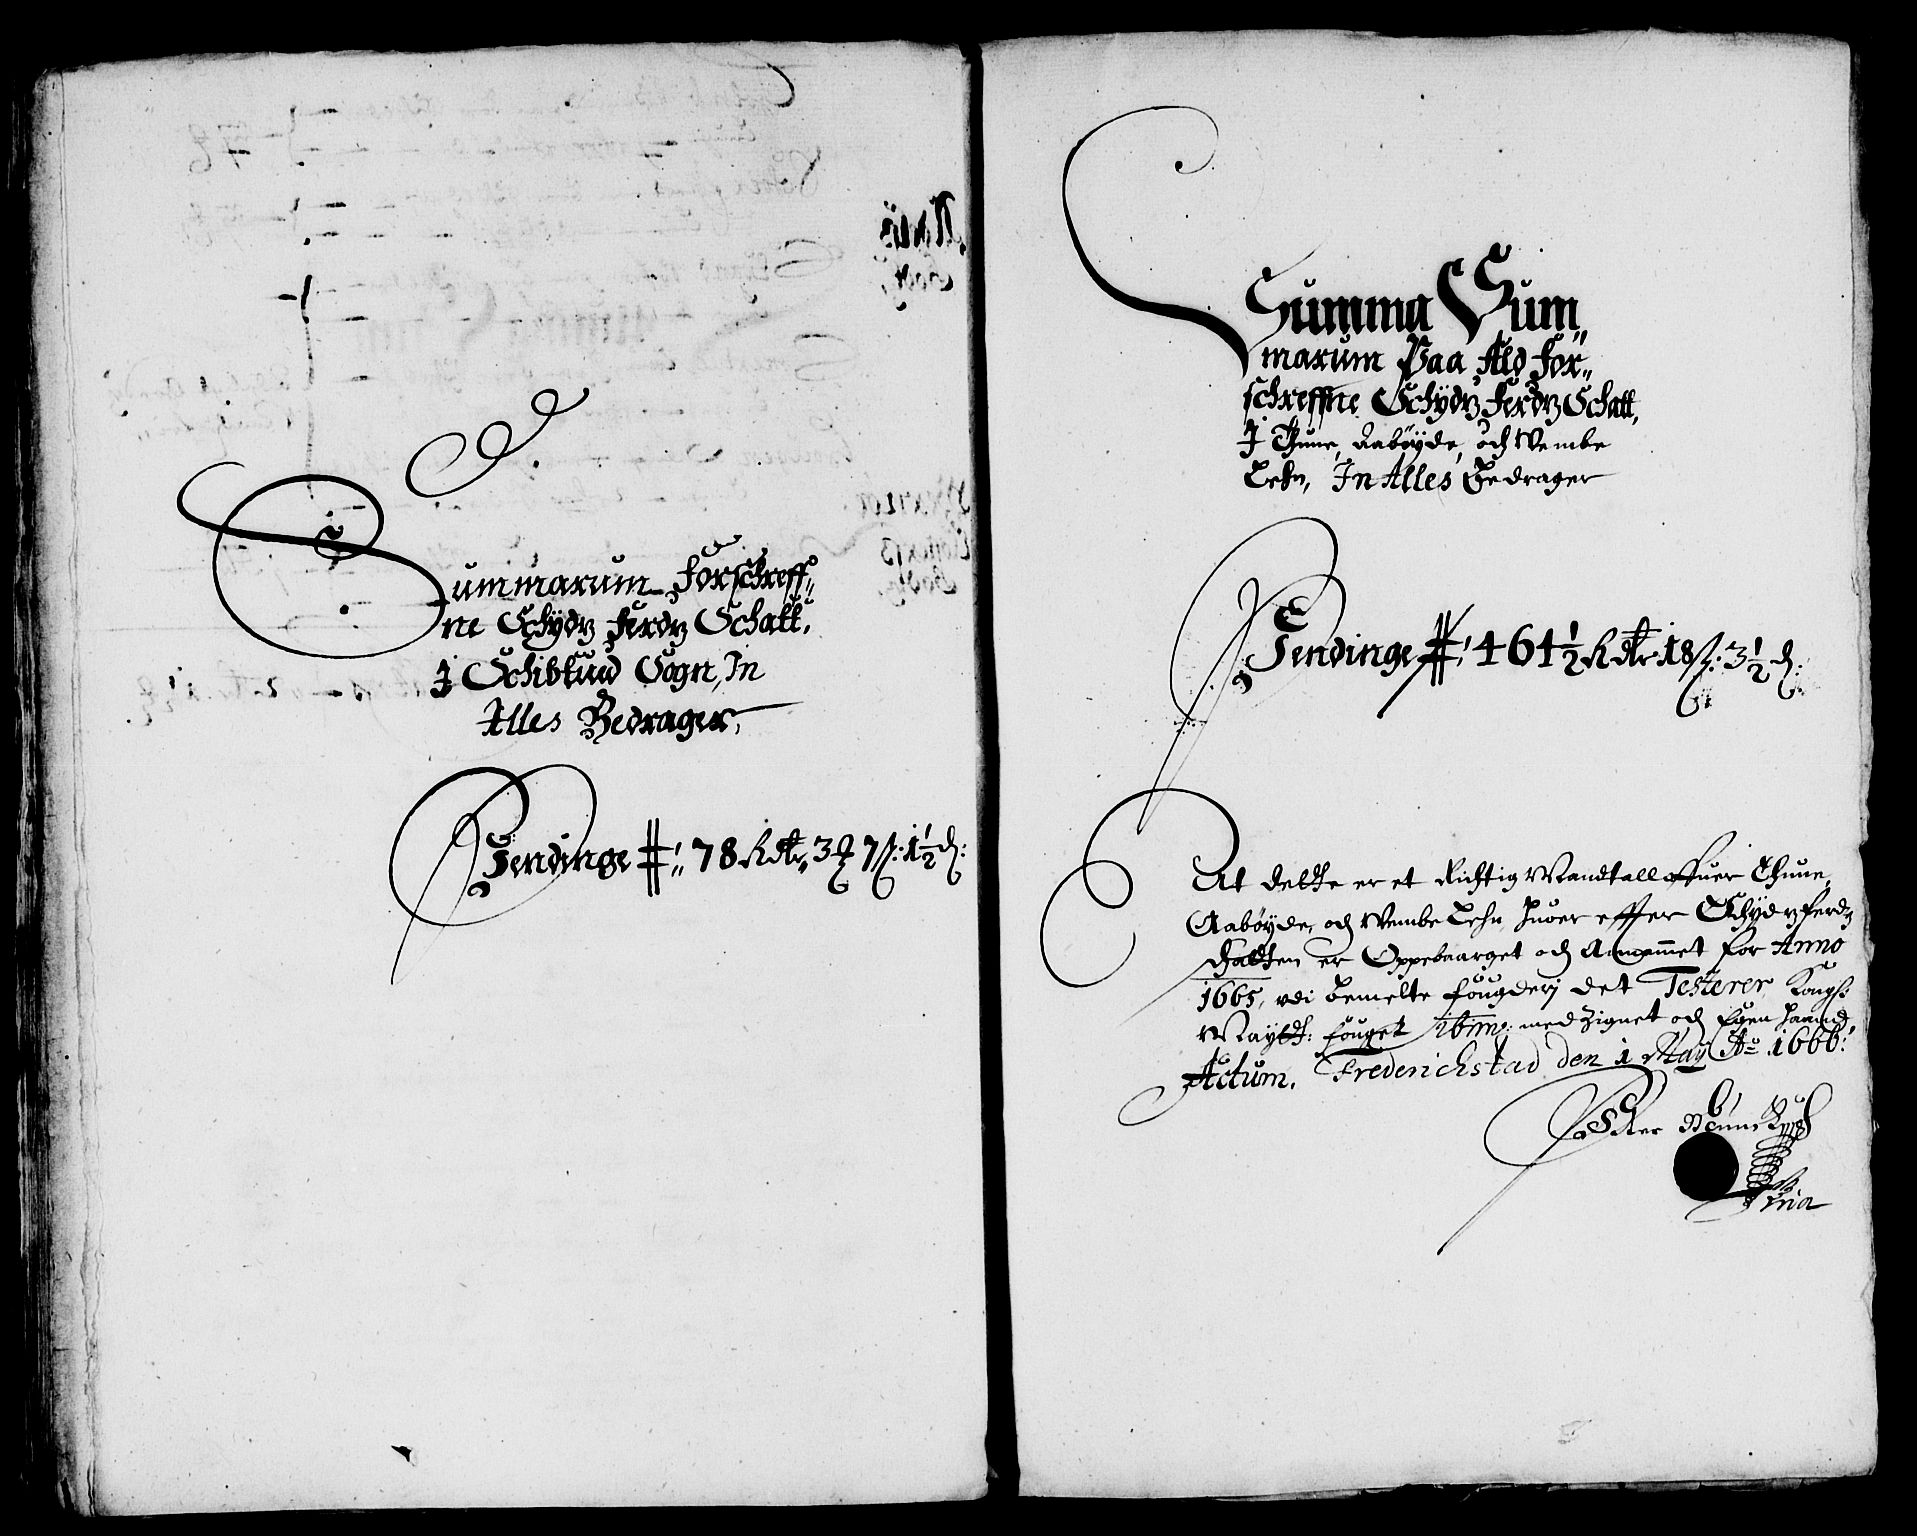 Summarum forschreff-
ne Schydz ferdz Schatt,
J Schibtuud Sogn, In
Alles Bedrager,
Pendinge # 78 Rdlr 3 ȝ 7 ß: 1½ d:
Summa Sum-
marum Paa Ald for-
schreffne Schydz ferdz Schatt,
J Thune, Aabøyde, och Vembe
Lehn, In Alles Bedrager
Pendinge # 464½ Rdlr 18 ß: 3½ d:
At dette er et Richtig Mandtall offuer Thune,
Aabøyde, och Vembe Lehn, huor effter Schydzferdz
schatten er Oppebaarget och Anammet for Anno
1665, udi bemelte fougderj det Testerer Kongl:
Maytz: fouget ibm: med Zignet och Egen haand,
Actum. Frederichstad den 1 May Ao 1666:
Pria